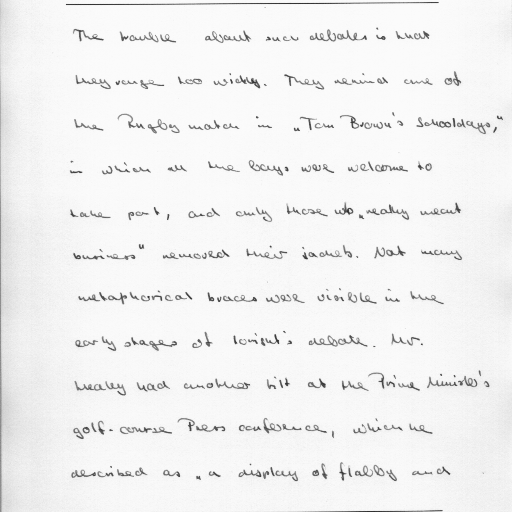 The trouble about such debates is that
they range too widely. They remind one of
the Rugby match in "Tom Brown's Schooldays,"
in which all the boys were welcome to
take part, and only those who "really meant
business" removed their jackets. Not many
metaphorical braces were visible in the
early stages of tonight's debate. Mr.
Healey had another tilt at the Prime Minister's
golf-course Press conference, which he
described as "a display of flabby and